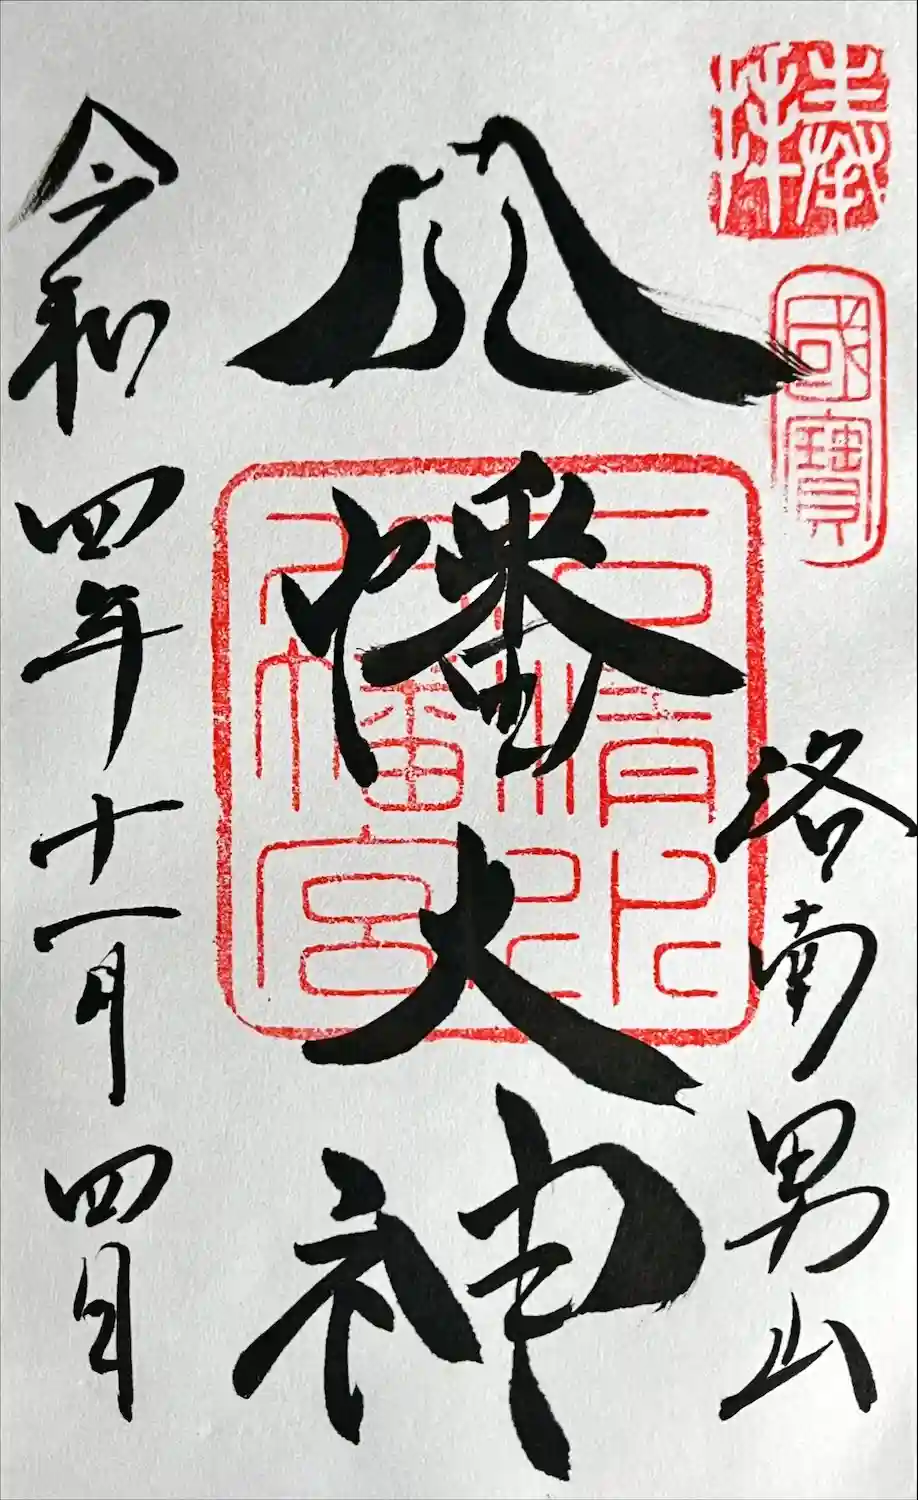 奉拝
國寶
洛南男山
八幡大神
石清水八幡宮
令和四年十一月四日